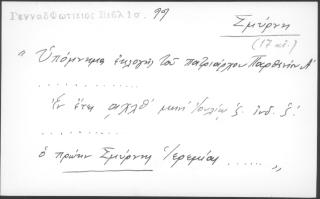 Γενναδ Φωτιειος Βιβλιο. 99
Σμύρνη
(17 αι.)
" Ὑπόμνημα ἐκλογῆς τοῦ πατριάρχου Παρθενίου Α'
. . . . . . . . . . . .
Ἐν ἔτει αχλθ' μηνὶ Ἰουλίῳ ζ. ἰνδ. ζ'.
. . . . . . . . . .
ὁ πρώην Σμύρνης Ἱερεμίας ...... "